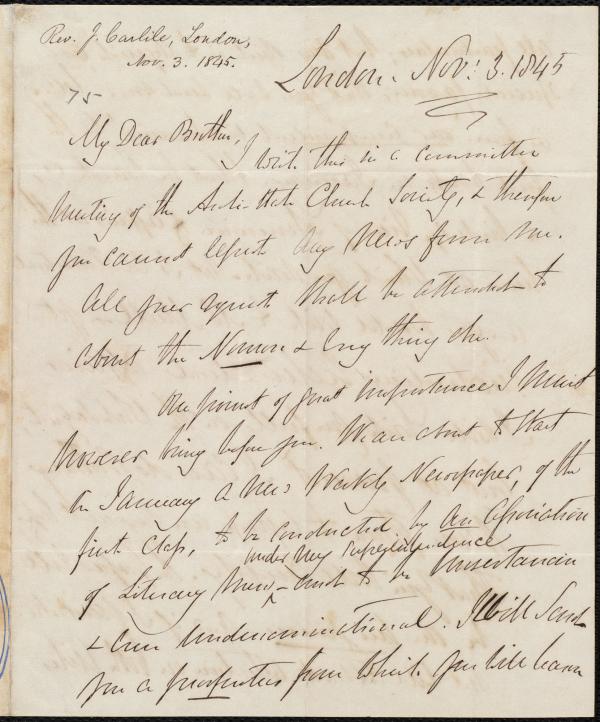 Rev. J. Carlile, London,
Nov. 3. 1845.
London. Nov: 3. 1845
75
My Dear Brother,
I write this in a committee
meeting of the Anti-State Church Society, & therefore
you cannot expect any news from me.
All your requests shall be attended to
about the Noncon & Every thing else.
One point of great importance I must
however bring before you. We are about to start
in January a new Weekly Newspaper, of the
first class, to be conducted by an association
under my superintendence
of Literary men - and to be Unsectarian
& even undenominational. I will send
you a prospectus from which you will learn